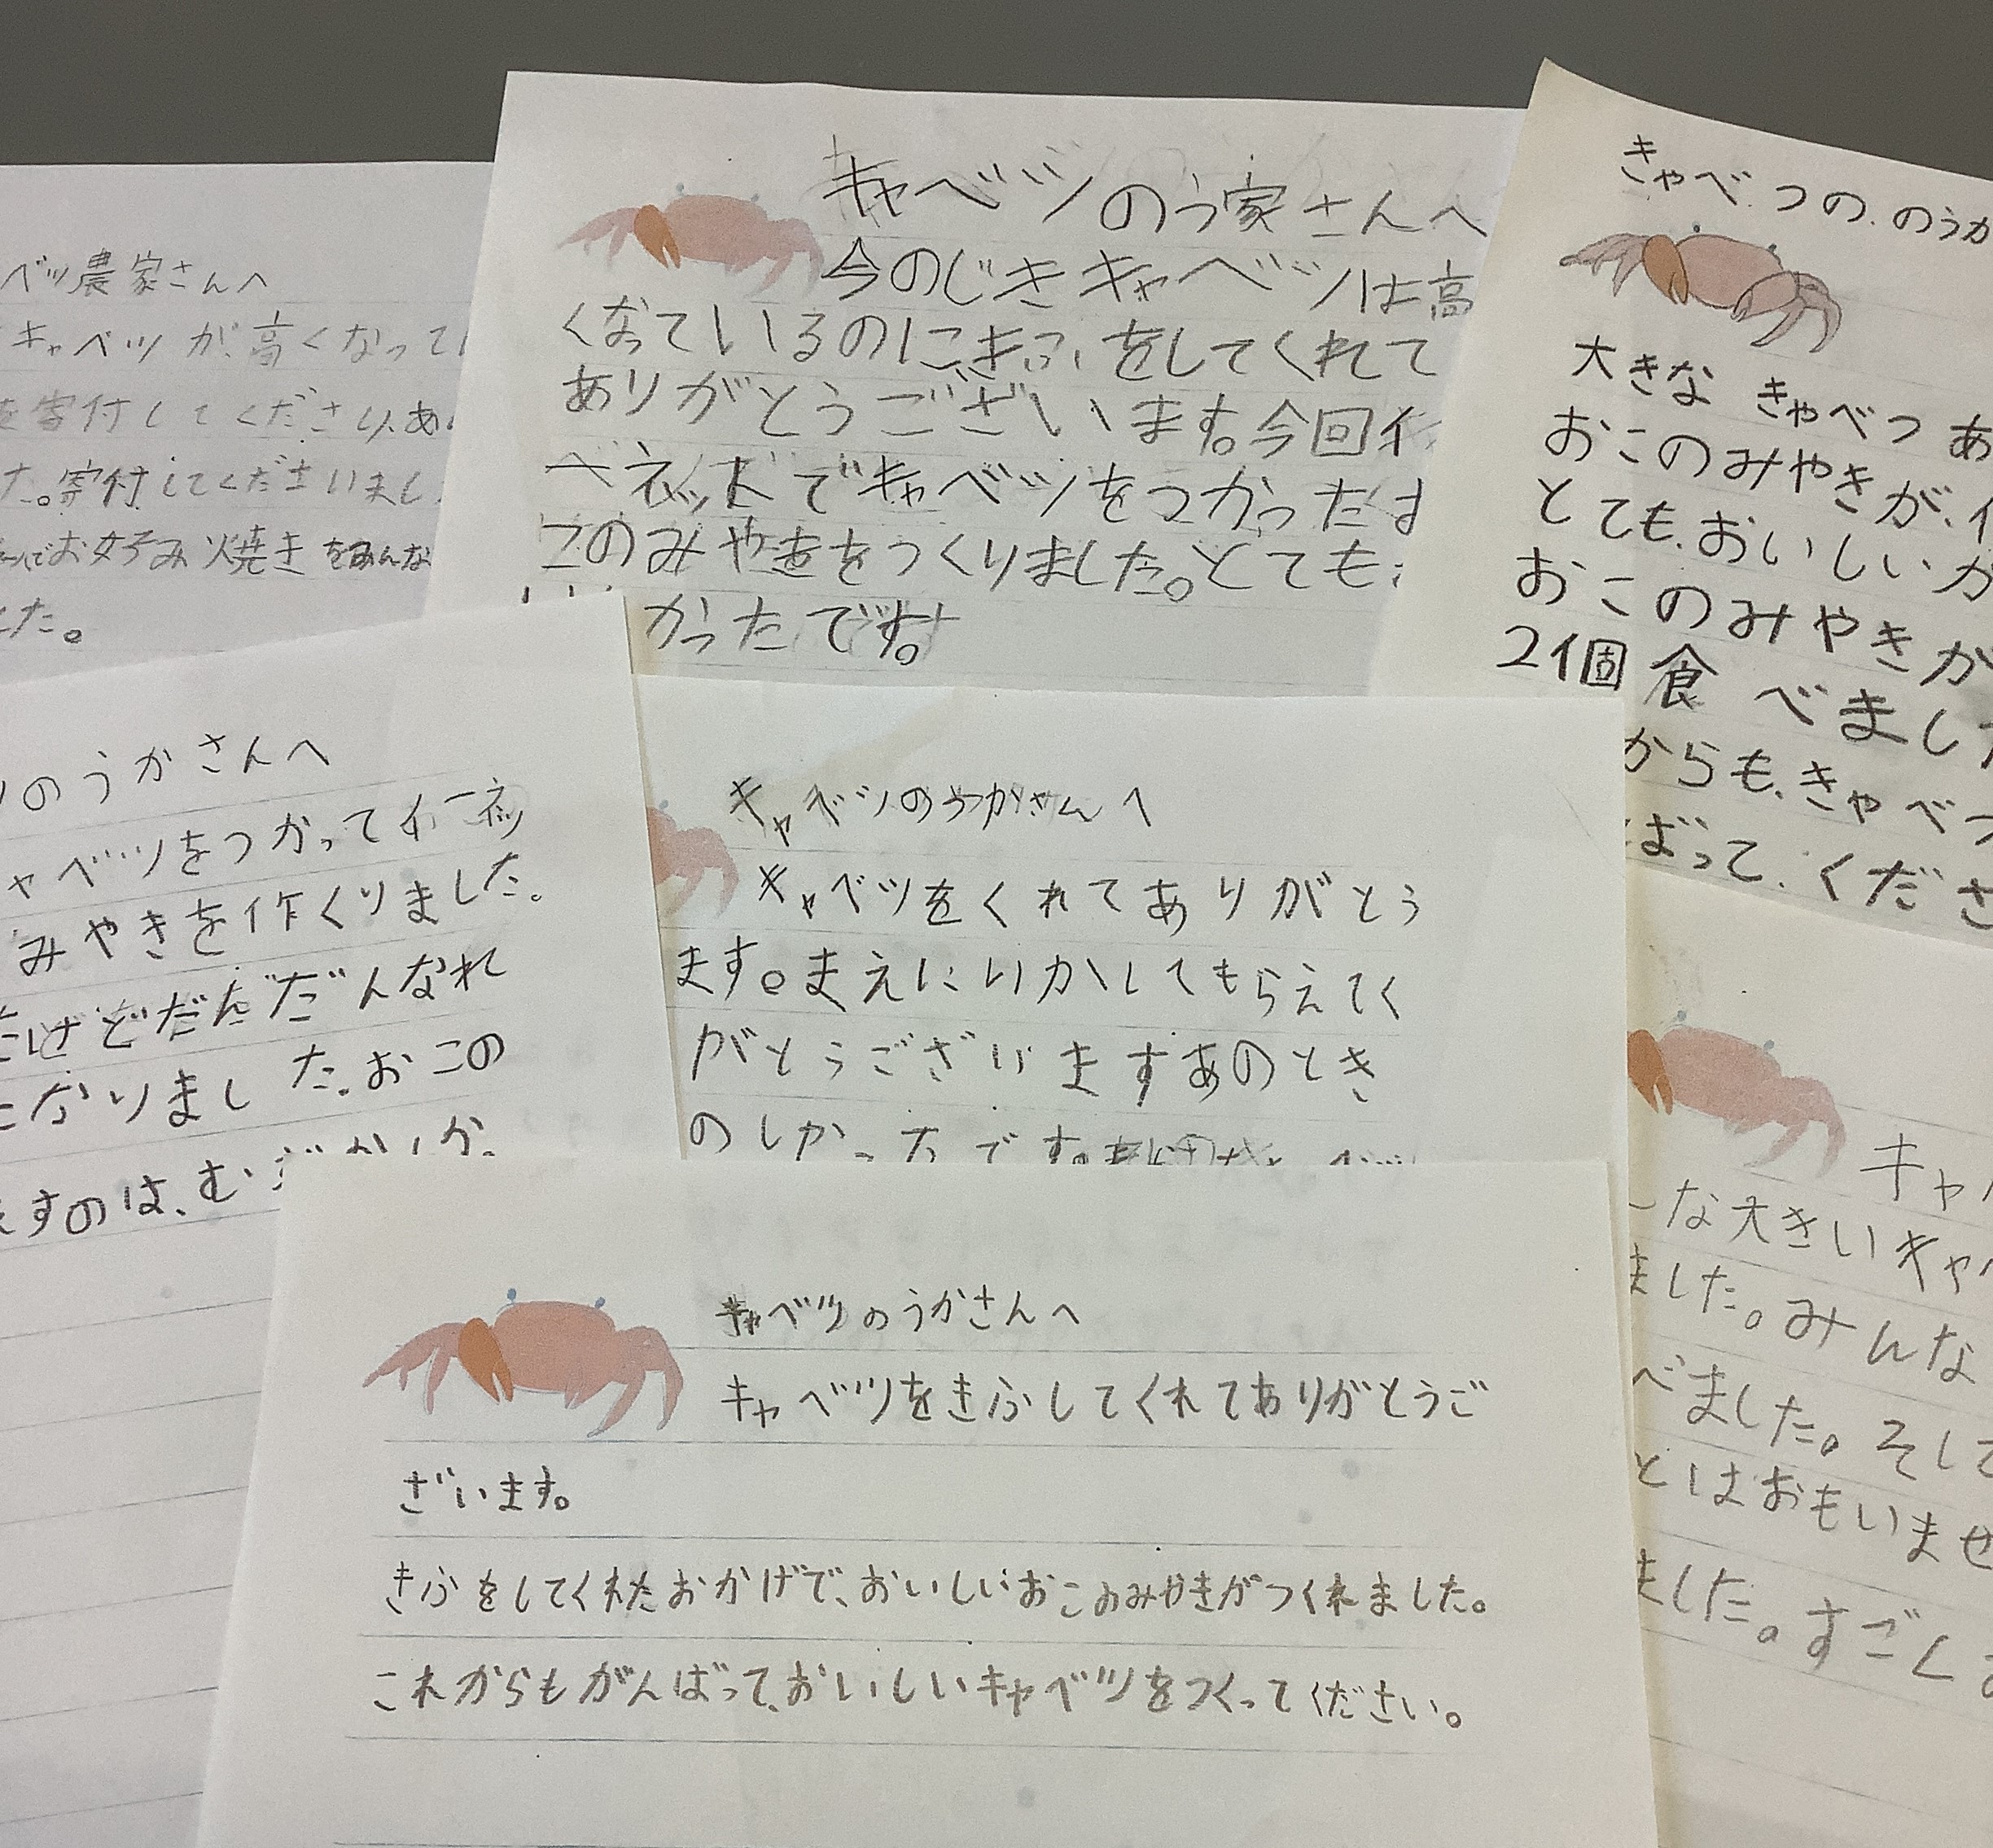 ベツ農家さんへ
キャベツが高くなって
寄付してくださり、あ
た。寄付してくださいまし
でお好み焼きをみんな
した。
キャベツのう家さんへ
今のじきキャベツは高
くなっているのにきふをしてくれて
ありがとうございます。今回イ
ベネットでキャベツをつかったお
このみやきをつくりました。とても
かったです。
きゃべつの.のうか
大きなきゃべつあ
おこのみやきが、イ
とても、おいしいか
おこのみやきか
2個食べました
からも、きゃべつ
ばって、くださ
のうかさんへ
ャベツをつかってイベネッ
みやきを作くりました。
たけどだんだんなれ
になりました。おこの
すのは、むずかしか
キャベツのうかさんへ
キャベツをくれてありがとう
ます。まえにいかしてもらえてく
がとうございますあのとき
のしかったです。
キャベツのうかさんへ
キャベツをきふしてくれてありがとうご
ざいます。
きふをしてくれたおかげで、おいしいおこのみやきがつくれました。
これからもがんばって、おいしいキャベツをつくってください。
キャ
な大きいキャ
ました。みんな
べました。そして
とはおもいませ
ました。すごく